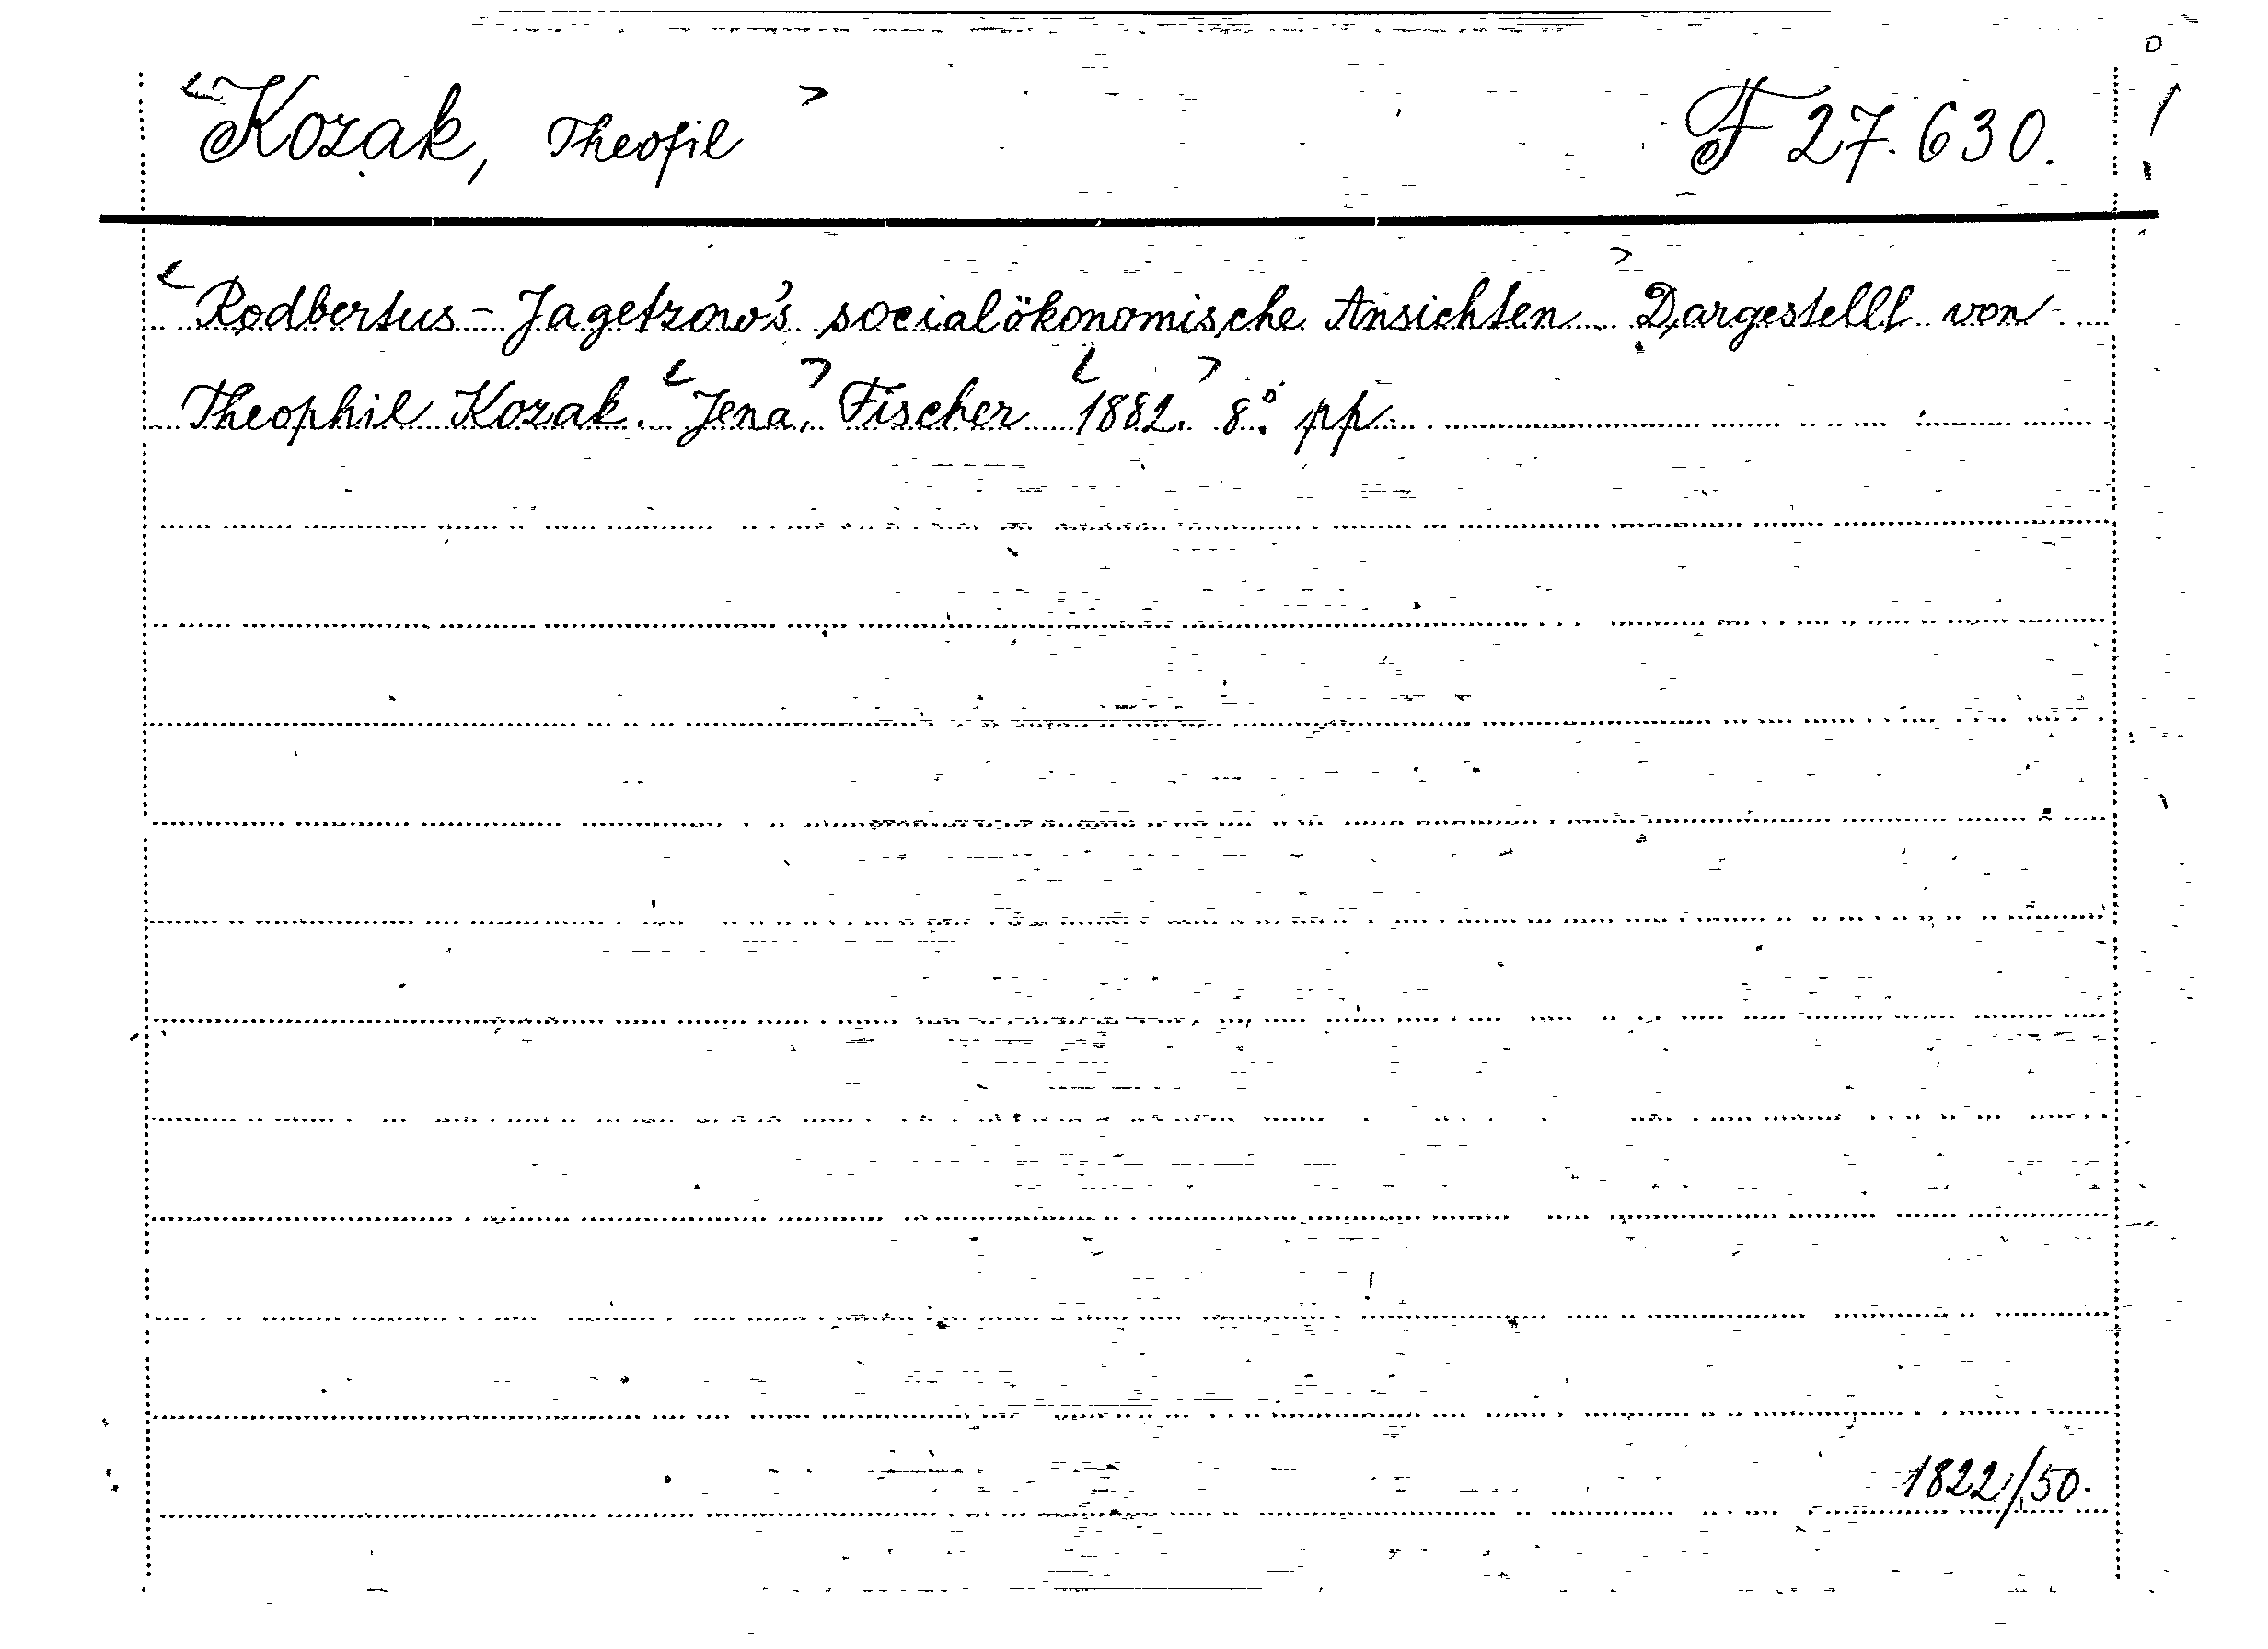 <Kozak, Theofil> F 27.630.
<Rodbertus-Jagetzow's socialökonomische Ansichten> Dargestellt von
Theophil Kozak. <Jena,> Fischer <1882.> 8° pp.
1822/50.